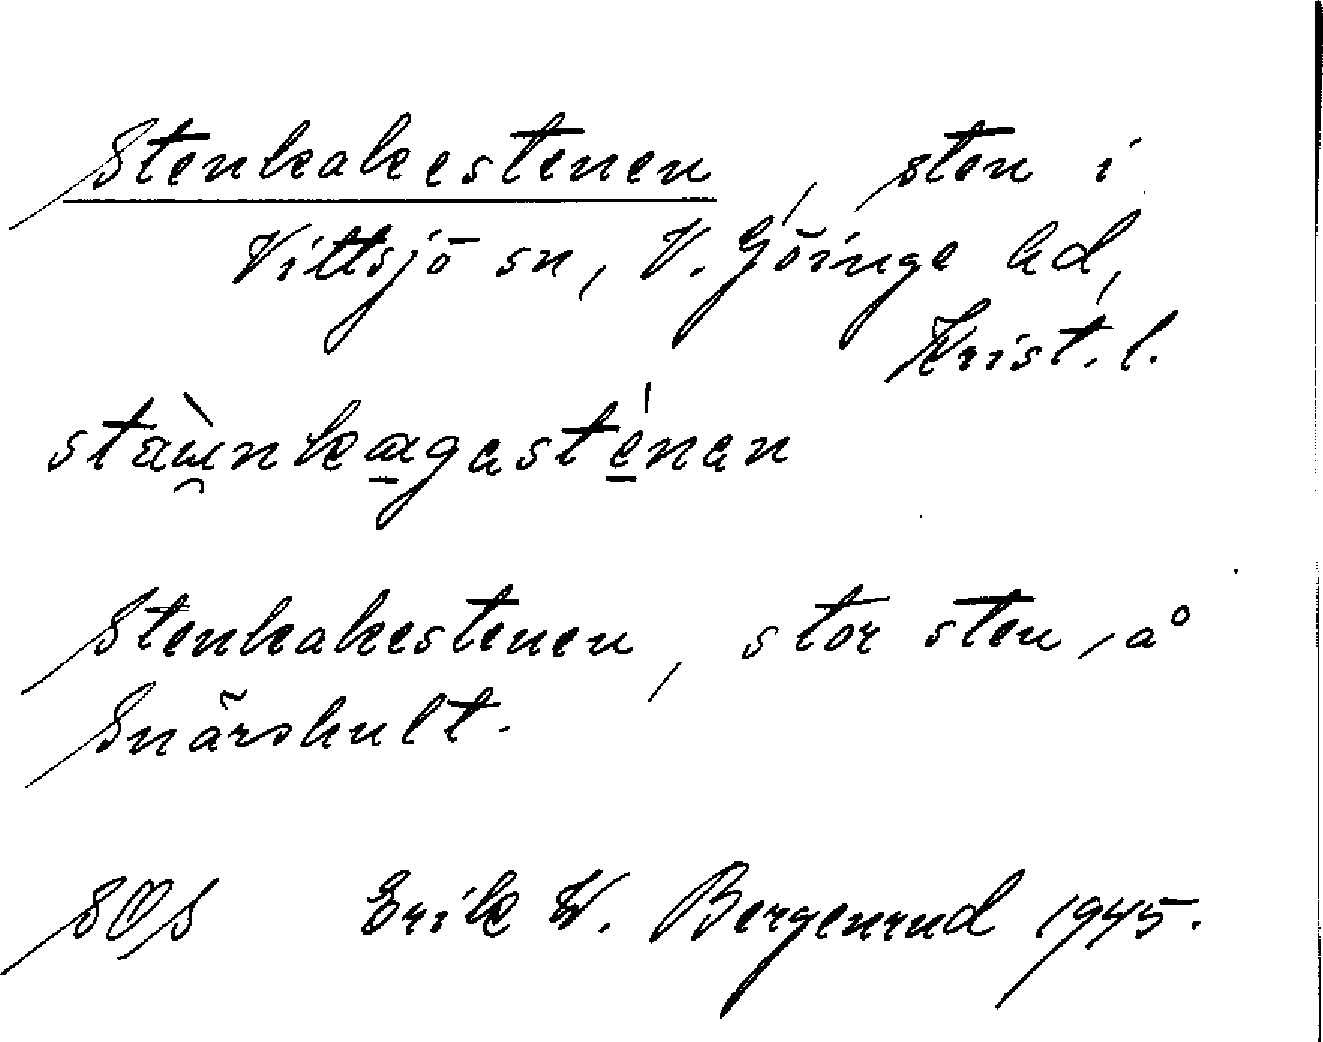 Stenkakestenen, sten i
Vittsjö sn, V. Göinge hd,
Krist. l.
Stenkakestenen, stor sten, å
Snärshult.
SOS Erik W. Bergenrud 1945.